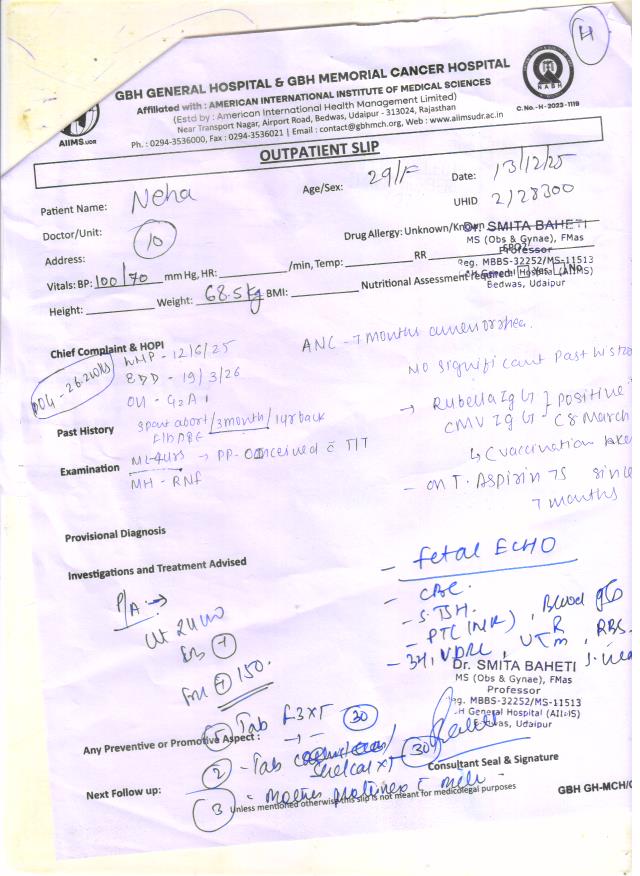 H
GBH GENERAL HOSPITAL & GBH MEMORIAL CANCER HOSPITAL
Affiliated with : AMERICAN INTERNATIONAL INSTITUTE OF MEDICAL SCIENCES
(Estd by : American International Health Management Limited)
Near Transport Nagar, Airport Road, Bedwas, Udaipur - 313024, Rajasthan
Ph. : 0294-3536000, Fax : 0294-3536021 | Email : contact@gbhmch.org, Web : www.aiimsudr.ac.in
AIIMS.UDR
NABH
C. No. - H - 2023 - 1119
OUTPATIENT SLIP
Patient Name: Neha
Age/Sex: 29/F
Date: 13/12/25
UHID 2/28300
Doctor/Unit: 10
Drug Allergy: Unknown/Known
Dr. SMITA BAHETI
MS (Obs & Gynae), FMas
Professor
Reg. MBBS-32252/MS-11513
GBH General Hospital (AIIMS)
Bedwas, Udaipur
Address:
Vitals: BP: 100/70 mm Hg, HR: /min, Temp: RR SPO2
Height: Weight: 68.5kg BMI: Nutritional Assessment required: Yes No
Chief Complaint & HOPI
LMP - 12/6/25
ANC - 7 months amenorrhea.
EDD - 19/3/26
No significant Past histo
OH - G2A1
POG - 26.2 wks
→ Rubella IgG } positive
CMV IgG
Past History
spont abort/3month/1yr back
vaccination take
Examination
ML-4yrs → PP - Conceived c̄ TIT
MH - RNF
- on T. Aspirin 75 since
7 months
Provisional Diagnosis
Investigations and Treatment Advised
- Fetal ECHO
- CBC.
P/A: →
- S. TSH.
Ut 24 wk
- PTC (INR), Blood gp
- 3H, VDRL, U R/M, RBS.
FHS + 150.
Dr. SMITA BAHETI
MS (Obs & Gynae), FMas
Professor
Reg. MBBS-32252/MS-11513
GBH General Hospital (AIIMS)
Bedwas, Udaipur
Tab 30
Any Preventive or Promotive Aspect :
2 - Tab 30
Consultant Seal & Signature
Next Follow up:
3 - c̄ milk
Unless mentioned otherwise this slip is not meant for medicolegal purposes
GBH GH-MCH/